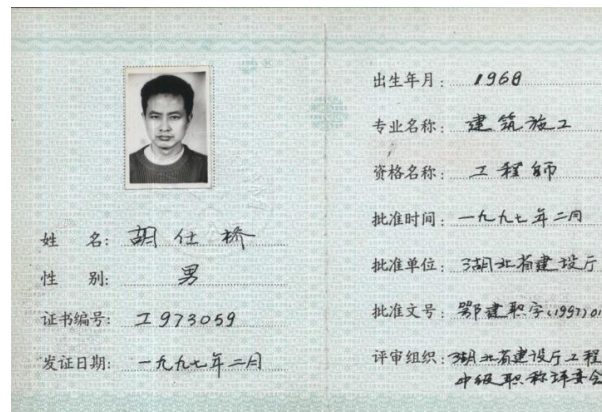 姓 名: 胡仕桥
性 别: 男
证书编号: 工973059
发证日期: 一九九七年二月
出生年月: 1968
专业名称: 建筑施工
资格名称: 工程师
批准时间: 一九九七年二月
批准单位: 湖北省建设厅
批准文号: 鄂建职字(1997)01
评审组织: 湖北省建设厅工程
中级职称评委会